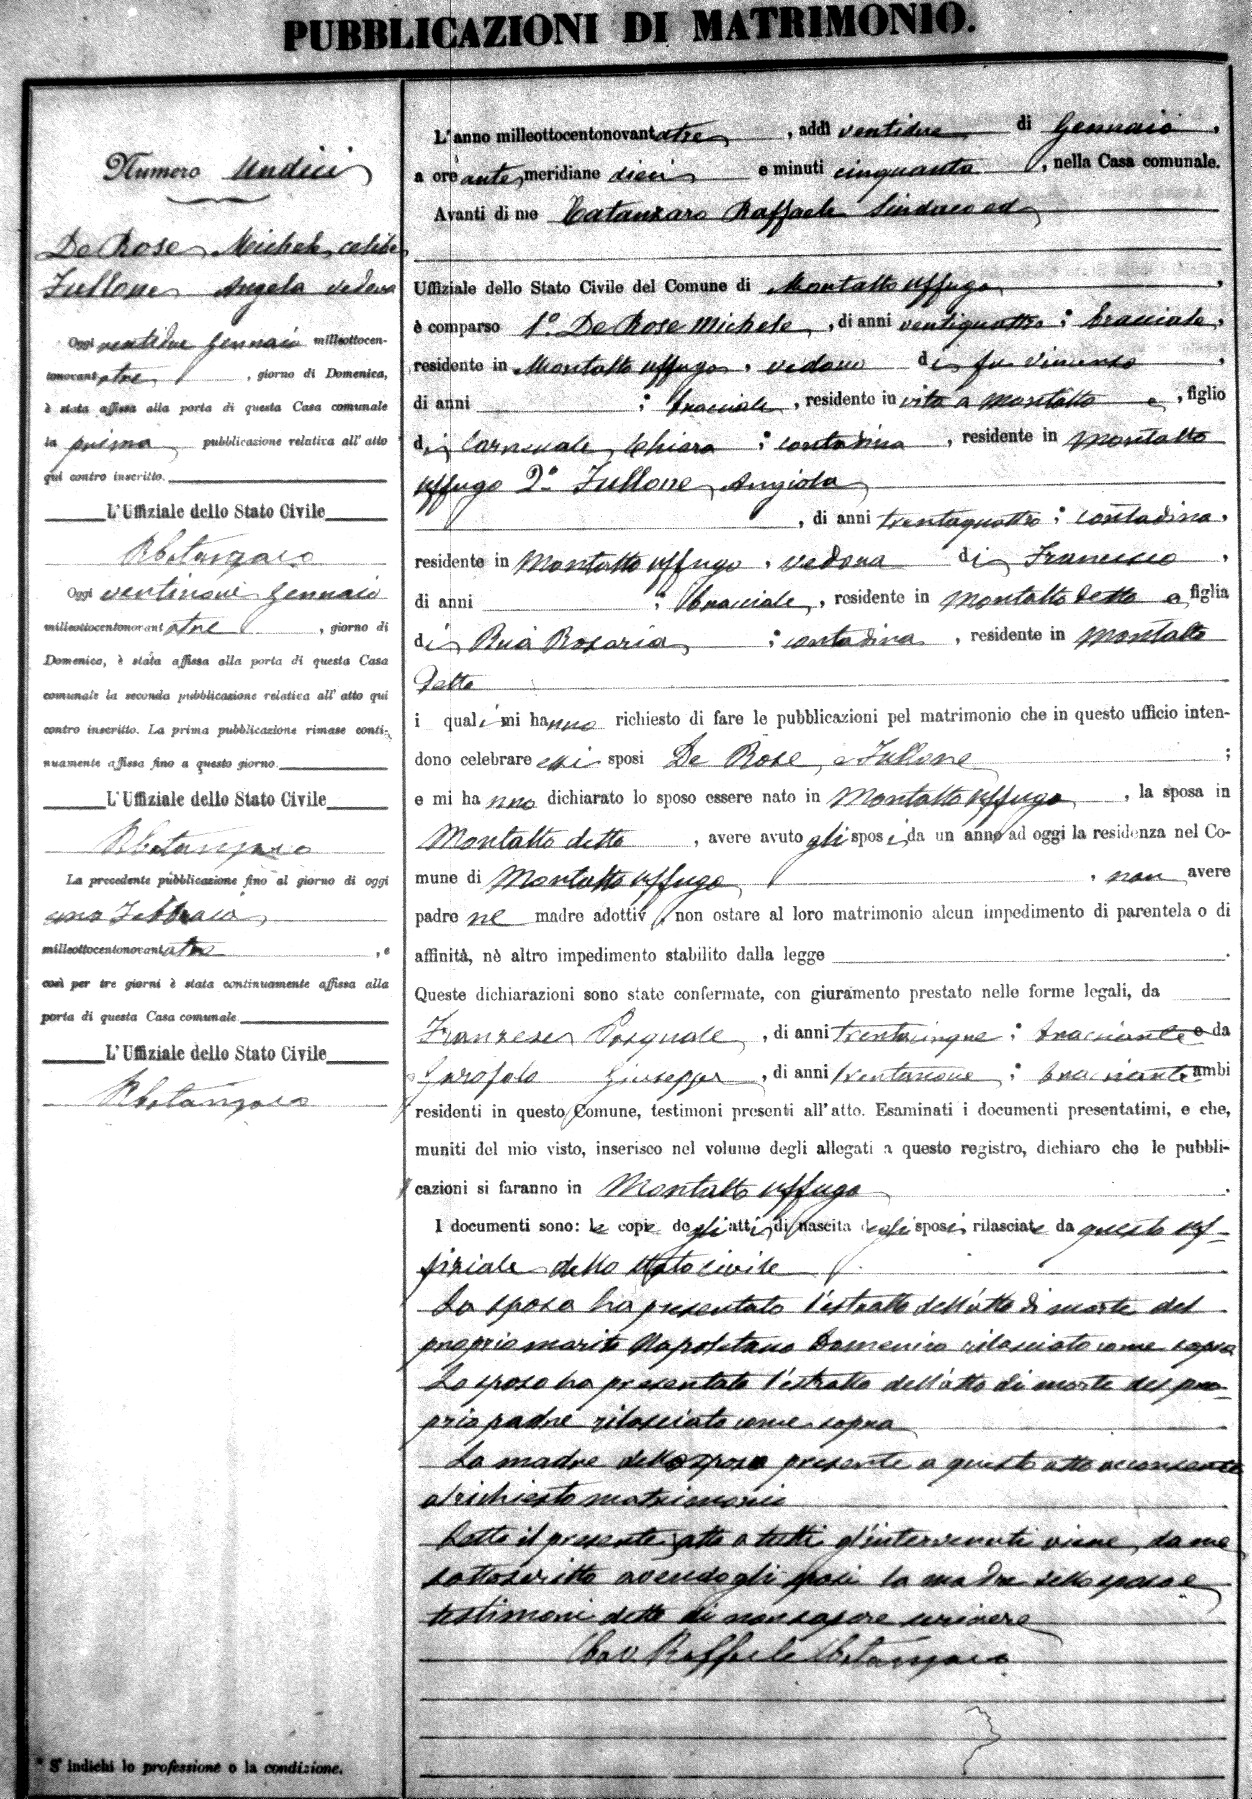 PUBBLICAZIONI DI MATRIMONIO.
Numero Undici
De Rose Michele celibe
Fullone Angela vedova
Oggi ventidue Gennaio milleottocen-
tonovantatre, giorno di Domenica,
è stata affissa alla porta di questa Casa comunale
la prima pubblicazione relativa all'atto
qui contro inscritto.
L'Uffiziale dello Stato Civile
RCatanzaro
Oggi ventinove Gennaio
milleottocentonovantatre, giorno di
Domenica, è stata affissa alla porta di questa Casa
comunale la seconda pubblicazione relativa all'atto qui
contro inscritto. La prima pubblicazione rimase conti-
nuamente affissa fino a questo giorno.
L'Uffiziale dello Stato Civile
RCatanzaro
La precedente pubblicazione fino al giorno di oggi
uno Febbraio
milleottocentonovantatre, e
così per tre giorni è stata continuamente affissa alla
porta di questa Casa comunale.
L'Uffiziale dello Stato Civile
RCatanzaro
* S'indichi lo professione o la condizione.
L'anno milleottocentonovantatre, addì ventidue di Gennaio,
a ore antemeridiane dieci e minuti cinquanta, nella Casa comunale.
Avanti di me Catanzaro Raffaele Sindaco ed
Uffiziale dello Stato Civile del Comune di Montalto Uffugo,
è comparso 1.° De Rose Michele, di anni ventiquattro; bracciale,
residente in Montalto Uffugo, di fu Vincenzo
di anni ; bracciale, residente in vita a Montalto e, figlio
di Carnevale Chiara; contadina, residente in Montalto
Uffugo 2.° Fullone Angiola
, di anni trentaquattro; contadina,
residente in Montalto Uffugo, vedova di Francesco,
di anni ; bracciale, residente in Montalto detto e figlia
di Ruà Rosaria; contadina, residente in Montalto
detto
i quali mi hanno richiesto di fare le pubblicazioni pel matrimonio che in questo ufficio inten-
dono celebrare essi sposi De Rose e Fullone;
e mi hanno dichiarato lo sposo essere nato in Montalto Uffugo, la sposa in
Montalto detto, avere avuto gli sposi da un anno ad oggi la residenza nel Co-
mune di Montalto Uffugo, non avere
padre nè madre adottiv, non ostare al loro matrimonio alcun impedimento di parentela o di
affinità, nè altro impedimento stabilito dalla legge.
Queste dichiarazioni sono state confermate, con giuramento prestato nelle forme legali, da
Franzese Pasquale, di anni trentacinque; bracciante e da
Garofalo Giuseppe, di anni trentanove; bracciante ambi
residenti in questo Comune, testimoni presenti all'atto. Esaminati i documenti presentatimi, e che,
muniti del mio visto, inserisco nel volume degli allegati a questo registro, dichiaro che le pubbli-
cazioni si faranno in Montalto Uffugo.
I documenti sono: le copie degli atti di nascita degli sposi rilasciate da questo uf-
fiziale dello stato civile
La sposa ha presentato l'estratto dell'atto di morte del
proprio marito Napoletano Domenico rilasciato come sopra
Lo sposo ha presentato l'estratto dell'atto di morte del pro-
prio padre rilasciato come sopra
La madre dello sposo presente a questo atto acconsente
al richiesto matrimonio
Letto il presente atto a tutti gl'intervenuti viene da me
sottoscritto avendo gli sposi la madre dello sposo e
testimoni detto di non sapere scrivere
Cav. Raffaele Catanzaro